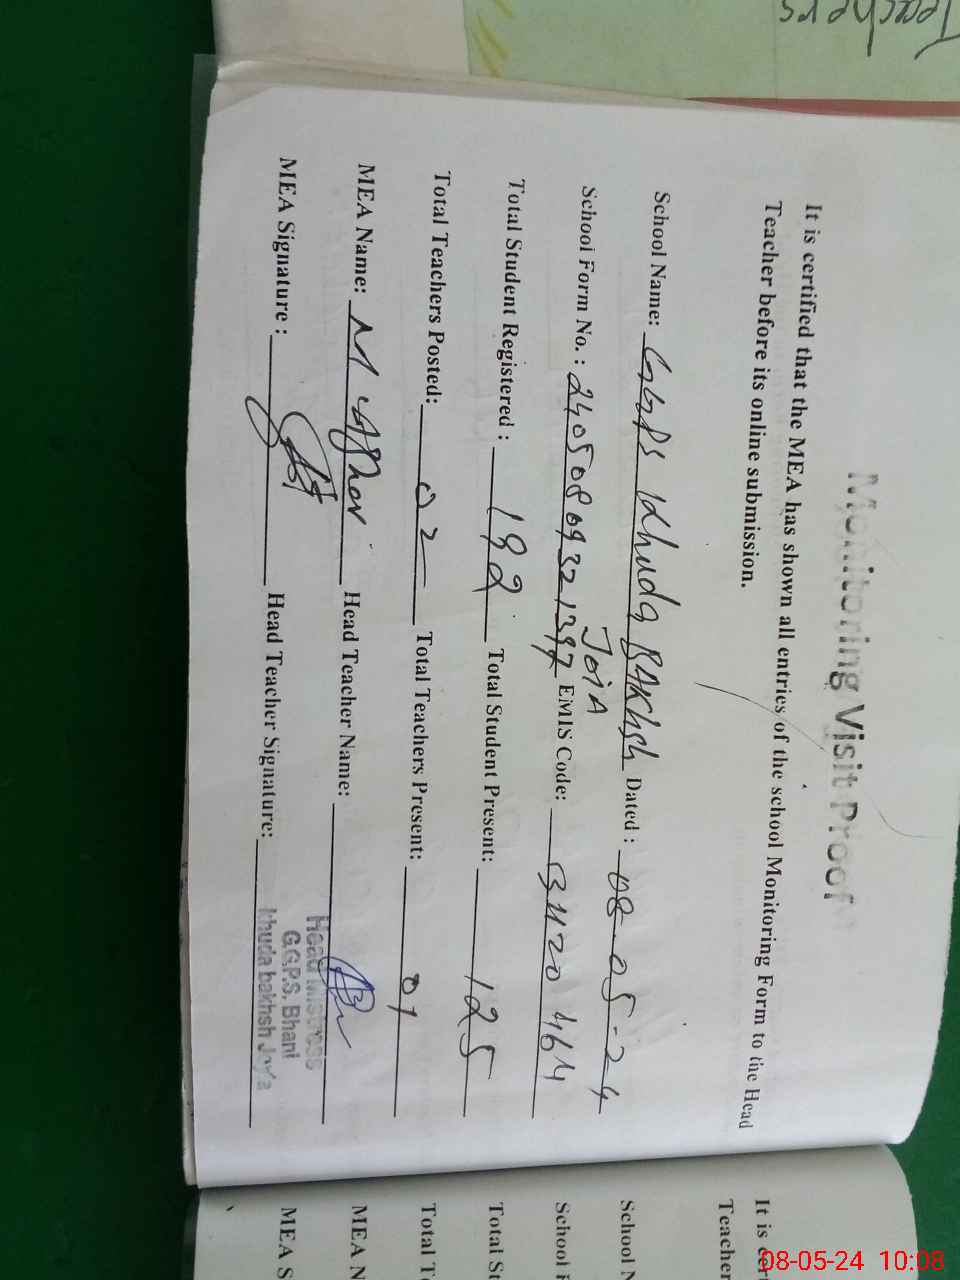 Teachers
Monitoring Visit Proof
It is certified that the MEA has shown all entries of the school Monitoring Form to the Head
Teacher before its online submission.
School Name: GGPS Khuda BAKhsh Dated : 08-05-24
JoiA
School Form No. : 24050809321397 EMIS Code: 31120464
Total Student Registered : 192 Total Student Present: 125
Total Teachers Posted: 02 Total Teachers Present: 01
MEA Name: M Head Teacher Name:
MEA Signature : Head Teacher Signature:
Head Mistress
G.G.P.S. Bhani
khuda bakhsh Joya
It is cert
Teacher
School N
School F
Total St
Total Te
MEA N
MEA S
08-05-24 10:08